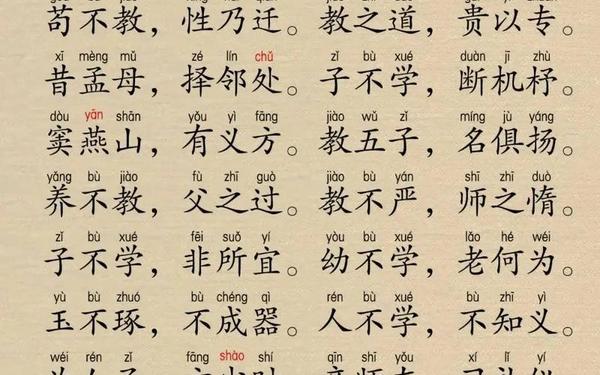 苟不教，性乃迁。教之道，贵以专。
xī mèng mǔ zé lín chǔ zǐ bù xué duàn jī zhù
昔孟母，择邻处。子不学，断机杼。
dòu yān shān yǒu yì fāng jiào wǔ zǐ míng jù yáng
窦燕山，有义方。教五子，名俱扬。
yǎng bù jiào fù zhī guò jiào bù yán shī zhī duò
养不教，父之过。教不严，师之惰。
zǐ bù xué fēi suǒ yí yòu bù xué lǎo hé wéi
子不学，非所宜。幼不学，老何为。
yù bù zhuó bù chéng qì rén bù xué bù zhī yì
玉不琢，不成器。人不学，不知义。
wéi rén zǐ fāng shào shí qīn shī yǒu xí lǐ yí